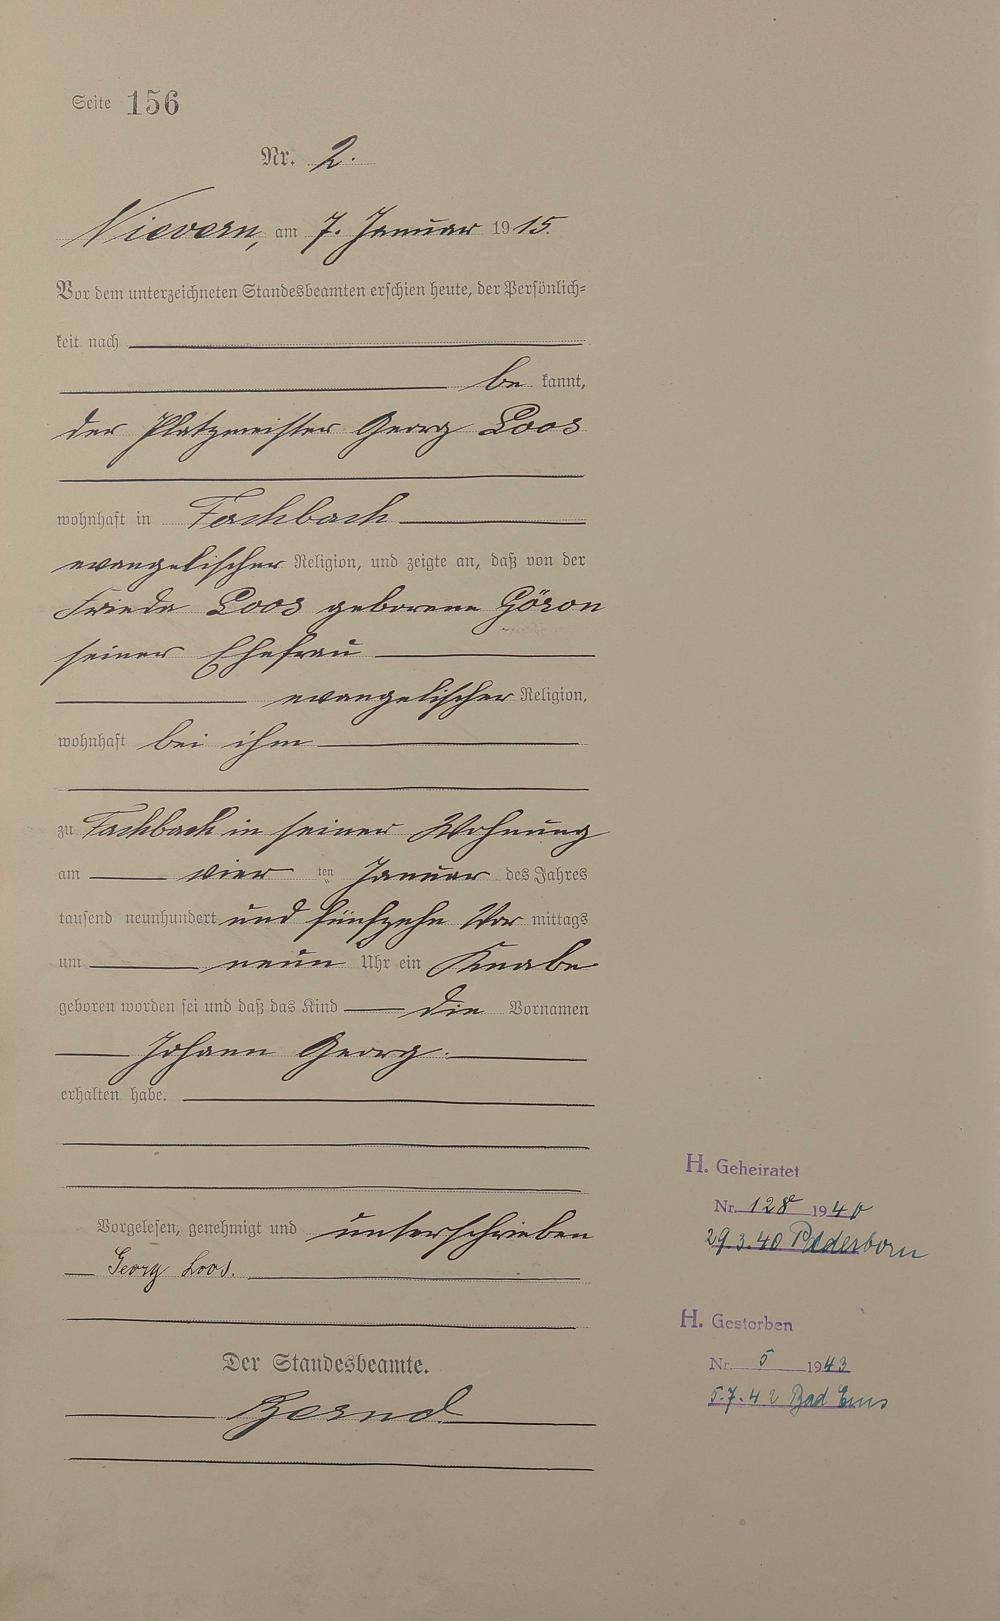 Seite 156
Nr. 2.
Nievern, am 7. Januar 1915.
Vor dem unterzeichneten Standesbeamten erschien heute, der Persönlich-
keit nach
be kannt,
der Platzmeister Georg Loos
wohnhaft in Fachbach
evangelischer Religion, und zeigte an, daß von der
Frieda Loos geborene Göron
seiner Ehefrau
evangelischer Religion,
wohnhaft bei ihm
zu Fachbach in seiner Wohnung
am vier ten Januar des Jahres
tausend neunhundert und fünfzehn Vor mittags
um neun Uhr ein Knabe
geboren worden sei und daß das Kind die Vornamen
Johann Georg.
erhalten habe.
Vorgelesen, genehmigt und unterschrieben
Georg Loos.
Der Standesbeamte.
Bernd
H. Geheiratet
Nr. 128 1940
29.3.40 Paderborn
H. Gestorben
Nr. 5 1943
5.7.42 Bad Ems